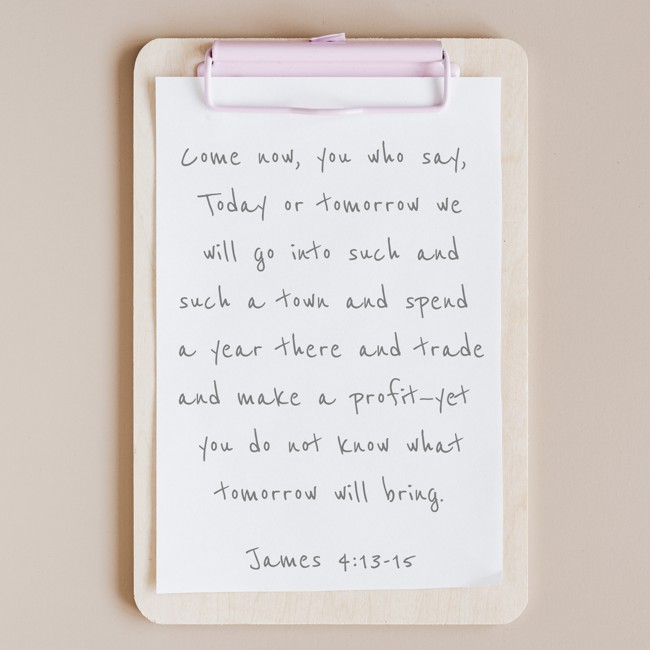 Come now, you who say,
Today or tomorrow we
will go into such and
such a town and spend
a year there and trade
and make a profit—yet
you do not know what
tomorrow will bring.
James 4:13-15